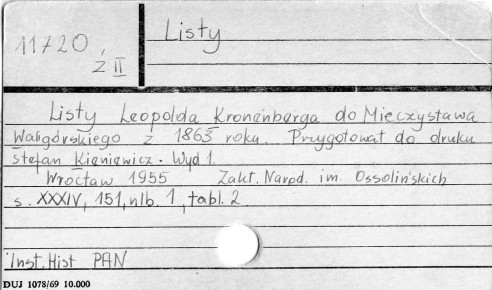 11720
Z II
Listy
Listy Leopolda Kronenberga do Mieczysława
Waligórskiego z 1863 roku. Przygotował do druku
Stefan Kieniewicz. Wyd 1.
Wrocław 1955 Zakł. Narod. im. Ossolińskich
s. XXXIV, 151, nlb. 1, tabl. 2
Inst. Hist PAN
DUJ 1078/69 10.000